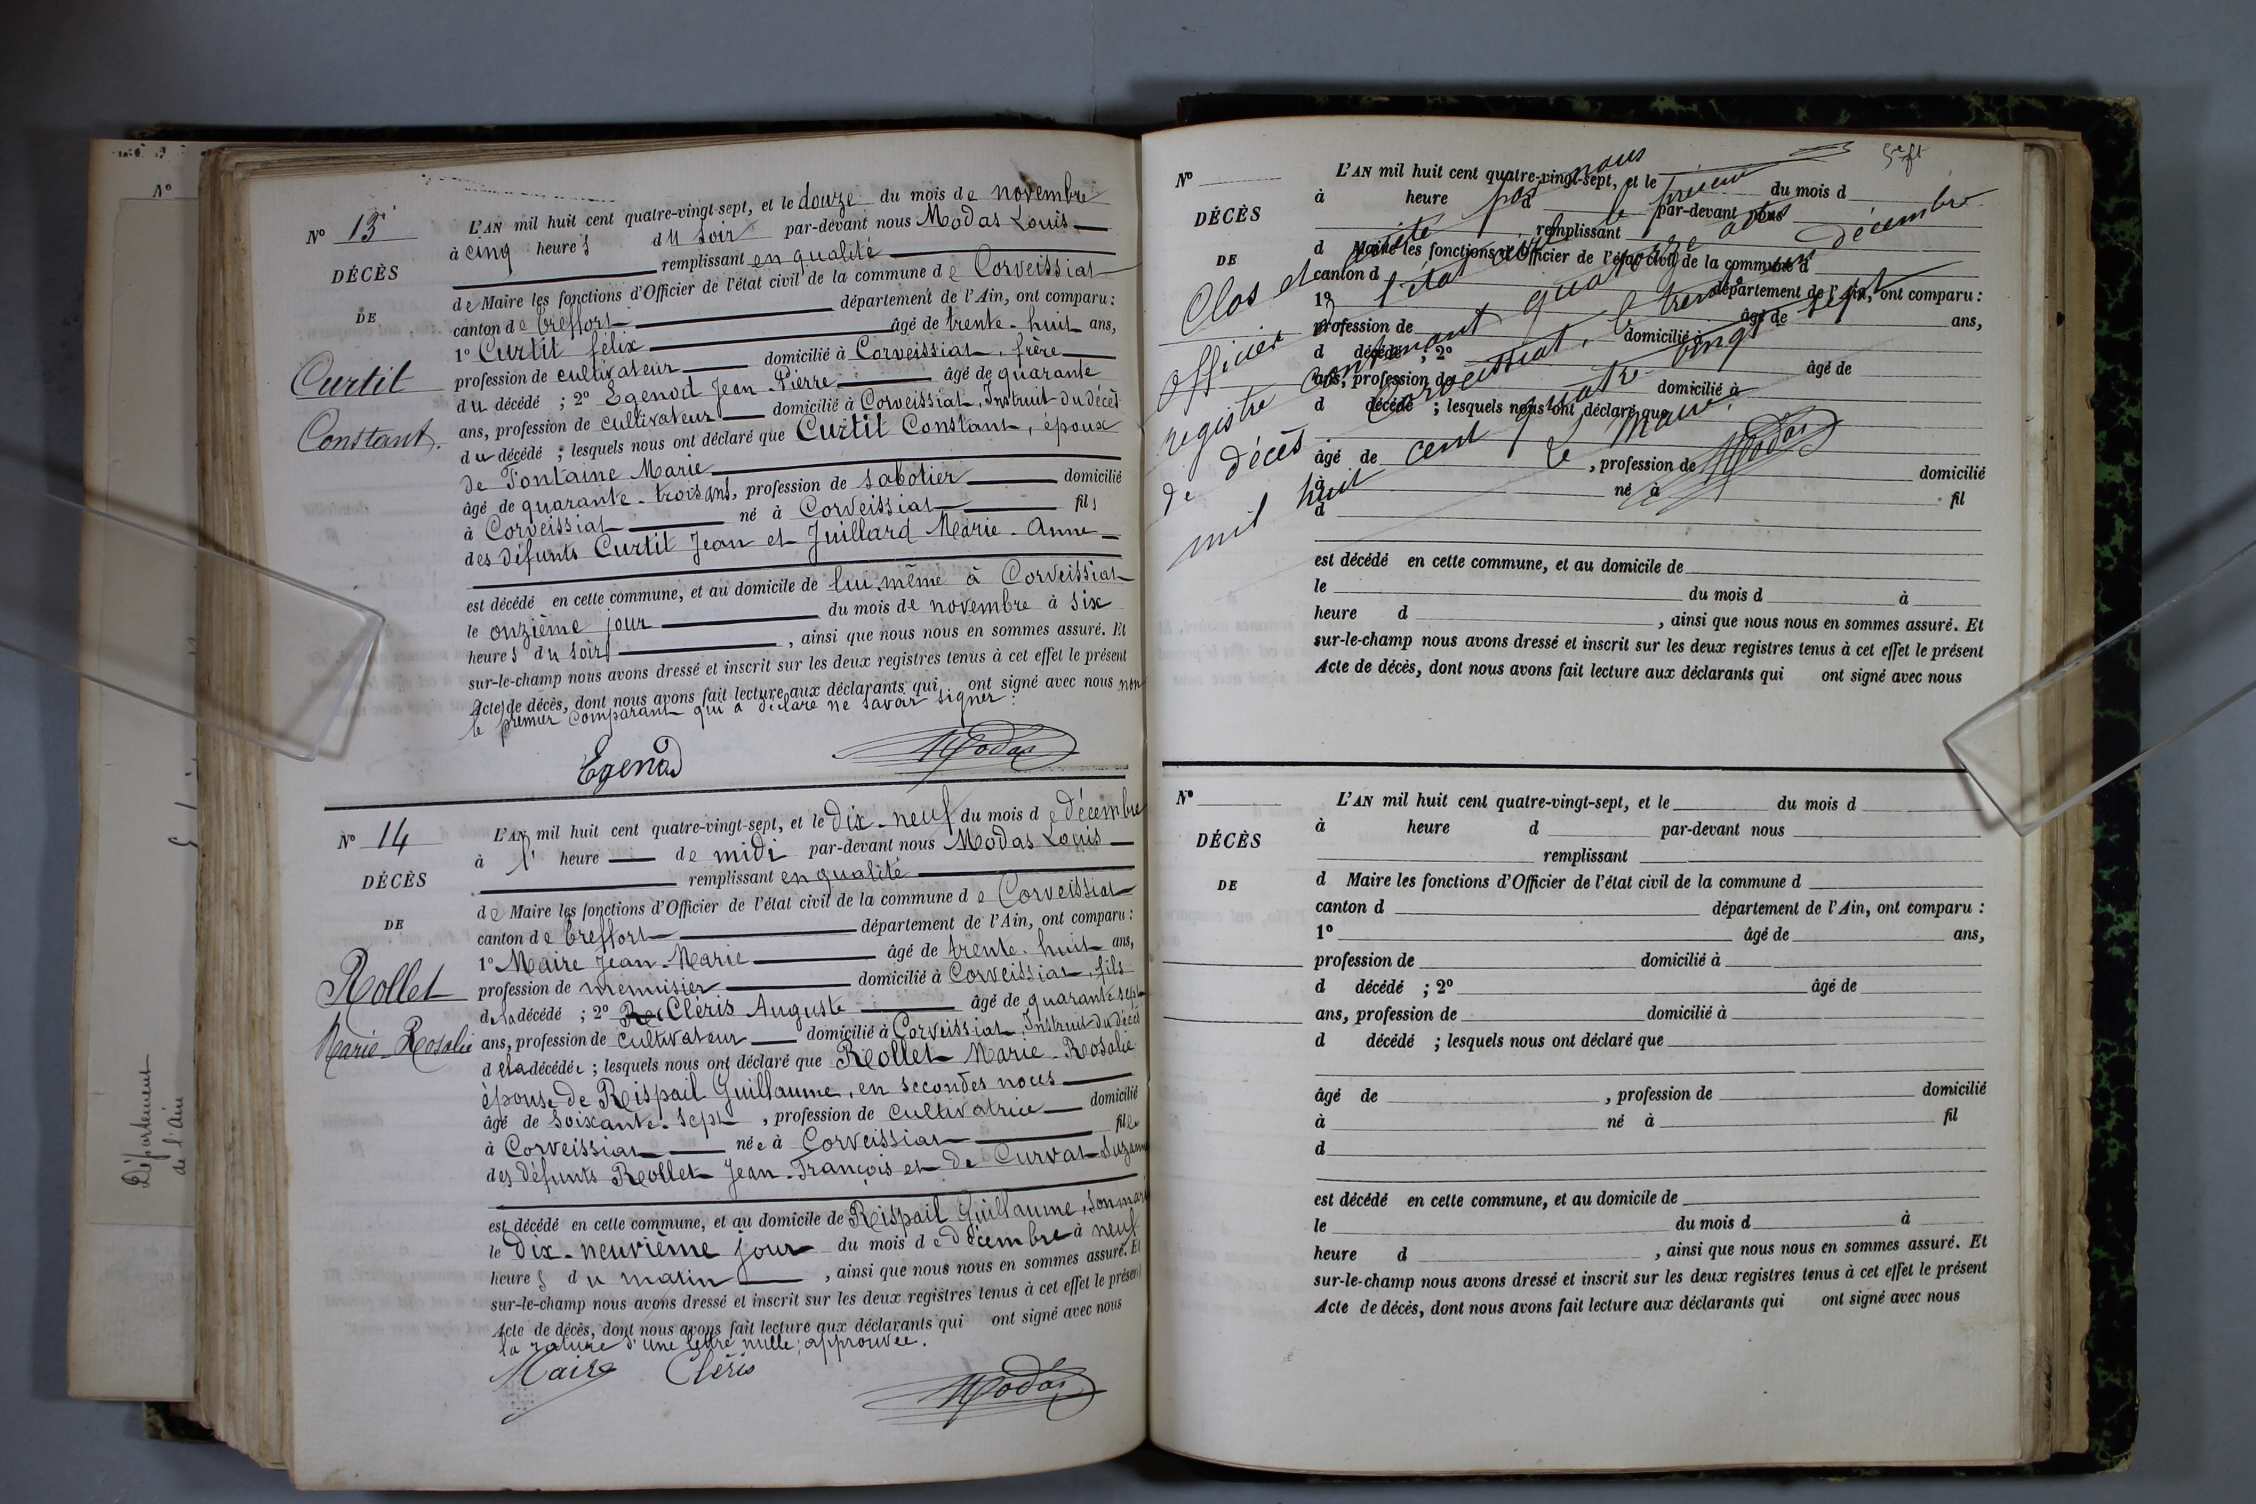 N° 13
DÉCÈS
DE
Curtil
Constant.
L'AN mil huit cent quatre-vingt-sept, et le douze du mois de novembre
à cinq heures du soir par-devant nous Modas Louis
remplissant en qualité
de Maire les fonctions d'Officier de l'état civil de la commune de Corveissiat
canton de Treffort département de l'Ain, ont comparu :
1° Curtil félix âgé de trente-huit ans,
profession de cultivateur domicilié à Corveissiat, frère
du décédé ; 2° Egenod Jean-Pierre âgé de quarante
ans, profession de cultivateur domicilié à Corveissiat, Instruit du décès
du décédé ; lesquels nous ont déclaré que Curtil Constant, époux
de Fontaine Marie
âgé de quarante-trois ans, profession de sabotier domicilié
à Corveissiat né à Corveissiat fils
des défunts Curtil Jean et Juillard Marie-Anne
est décédé en cette commune, et au domicile de lui-même à Corveissiat
le onzième jour du mois de novembre à six
heures du soir , ainsi que nous nous en sommes assuré. Et
sur-le-champ nous avons dressé et inscrit sur les deux registres tenus à cet effet le présent
Acte de décès, dont nous avons fait lecture aux déclarants qui ont signé avec nous non
le premier comparant qui a déclaré ne savoir signer.
Egenod Modas
N° 14
DÉCÈS
DE
Rollet
Marie-Rosalie
L'AN mil huit cent quatre-vingt-sept, et le dix-neuf du mois de décembre
à l' heure de midi par-devant nous Modas Louis
remplissant en qualité
de Maire les fonctions d'Officier de l'état civil de la commune de Corveissiat
canton de Treffort département de l'Ain, ont comparu :
1° Maire Jean-Marie âgé de trente-huit ans,
profession de menuisier domicilié à Corveissiat, fils
de la décédé ; 2° Cléris Auguste âgé de quarante-sept
ans, profession de cultivateur domicilié à Corveissiat, Instruit du décès
de la décédée ; lesquels nous ont déclaré que Rollet Marie-Rosalie
épouse de Rispail Guillaume, en secondes noces
âgé de soixante-sept , profession de cultivatrice domicilié
à Corveissiat née à Corveissiat fille
des défunts Rollet Jean-François et de Curvat Suzanne
est décédé en cette commune, et au domicile de Rispail Guillaume, son mari
le dix-neuvième jour du mois de décembre à neuf
heures du matin , ainsi que nous nous en sommes assuré. Et
sur-le-champ nous avons dressé et inscrit sur les deux registres tenus à cet effet le présent
Acte de décès, dont nous avons fait lecture aux déclarants qui ont signé avec nous
la rature d'une lettre nulle, approuvée.
Maire Cléris
Modas
Département
de l'Ain
N°
DÉCÈS
DE
L'AN mil huit cent quatre-vingt-sept, et le du mois d
à heure d par-devant nous
remplissant
d Maire les fonctions d'Officier de l'état civil de la commune d
canton d département de l'Ain, ont comparu :
1° âgé de ans,
profession de domicilié à
d décédé ; 2° âgé de
ans, profession de domicilié à
d décédé ; lesquels nous ont déclaré que
âgé de , profession de domicilié
à né à fil
d
est décédé en cette commune, et au domicile de
le du mois d à
heure d , ainsi que nous nous en sommes assuré. Et
sur-le-champ nous avons dressé et inscrit sur les deux registres tenus à cet effet le présent
Acte de décès, dont nous avons fait lecture aux déclarants qui ont signé avec nous
Clos et arrêté par nous
officier de l'état civil le présent
registre contenant quatorze actes
de décès Corveissiat, le trente un décembre
mil huit cent quatre-vingt sept
Le Maire,
Modas
N°
DÉCÈS
DE
L'AN mil huit cent quatre-vingt-sept, et le du mois d
à heure d par-devant nous
remplissant
d Maire les fonctions d'Officier de l'état civil de la commune d
canton d département de l'Ain, ont comparu :
1° âgé de ans,
profession de domicilié à
d décédé ; 2° âgé de
ans, profession de domicilié à
d décédé ; lesquels nous ont déclaré que
âgé de , profession de domicilié
à né à fil
d
est décédé en cette commune, et au domicile de
le du mois d à
heure d , ainsi que nous nous en sommes assuré. Et
sur-le-champ nous avons dressé et inscrit sur les deux registres tenus à cet effet le présent
Acte de décès, dont nous avons fait lecture aux déclarants qui ont signé avec nous